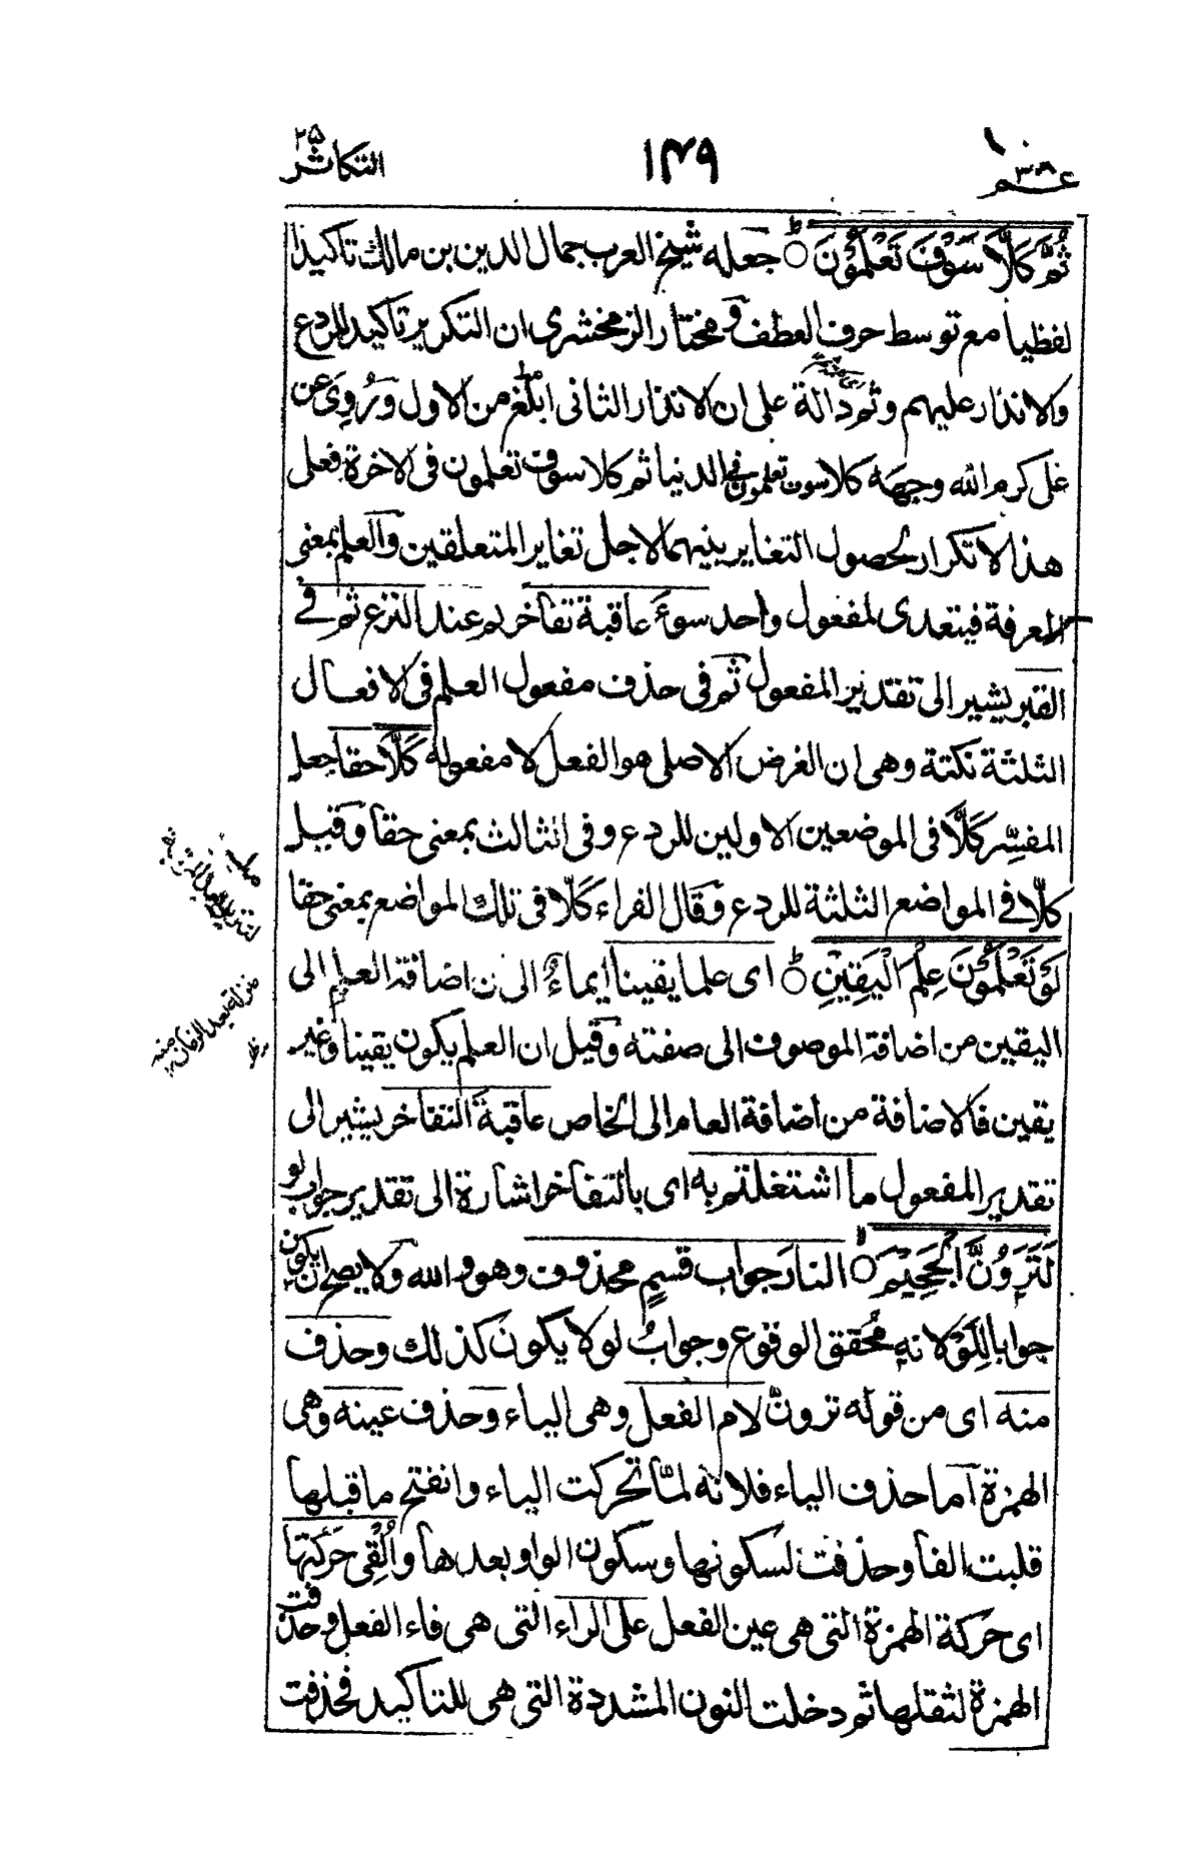 عم ٣٠
١٤٩
التكاثر
ثُمَّ كَلَّا سَوْفَ تَعْلَمُوْنَ ○ جعله شيخ العرب جمال الدين بن مالك تاكيدا
لفظيا مع توسط حرف العطف ومختار الزمخشرى ان التكرير تاكيد للردع
والانذار عليهم وثم دالة على ان الانذار الثانى ابلغ من الاول وَرُوِىَ عن
على كرم الله وجهه كلا سوف تعلمون في الدنيا ثم كلا سوف تعلمون فى الاخرة فعلى
هذا لا تكرار لحصول التغاير بينهما لاجل تغاير المتعلقين والعلم بمعنى
المعرفة فيتعدى لمفعول واحد سوءَ عاقبة تفاخركم عند النزع ثم فے
القبر يشير الى تقدير المفعول ثم فى حذف مفعول العلم فى الافعال
الثلثة نكتة وهى ان الغرض الاصلى هو الفعل لا مفعوله كَلَّا حقا جعل
المفسِّر كَلَّا فى الموضعين الاولين للردع وفى الثالث بمعنى حقا وقيل
كلّا فے المواضع الثلثة للردع وقال الفراء كَلّا فى تلك المواضع بمعنى حقا
لَوْ تَعْلَمُوْنَ عِلْمَ الْيَقِيْنِ ○ اى علما يقينا ايماءٌ الى ان اضافة العلم الى
اليقين من اضافة الموصوف الى صفته وقيل ان العلم يكون يقينا وغير
يقين فالاضافة من اضافة العام الى الخاص عاقبةَ التفاخر يشير الى
تقدير المفعول ما اشتغلتم به اى بالتفاخر اشارة الى تقدير جواب لو
لَتَرَوُنَّ الْجَحِيْمَ ○ النار جواب قسمٍ محذوف وهو والله ولا يصح ان يكون
جوابا لِلَوْ لانه مُحقق الوقوع وجوابُ لو لا يكون كذلك وحذف
منه اى من قوله ترونّ لام الفعل وهى الياء وحذف عينه وهى
الهمزة اما حذف الياء فلانه لمّا تحركت الياء وانفتح ما قبلها
قلبت الفا وحذفت لسكونها وسكون الواو بعدها واُلْقِىَ حَرَكَتُها
اى حركة الهمزة التى هى عين الفعل على الراء التى هى فاء الفعل وحذفت
الهمزة لثقلها ثم دخلت النون المشددة التى هى للتاكيد فحذفت